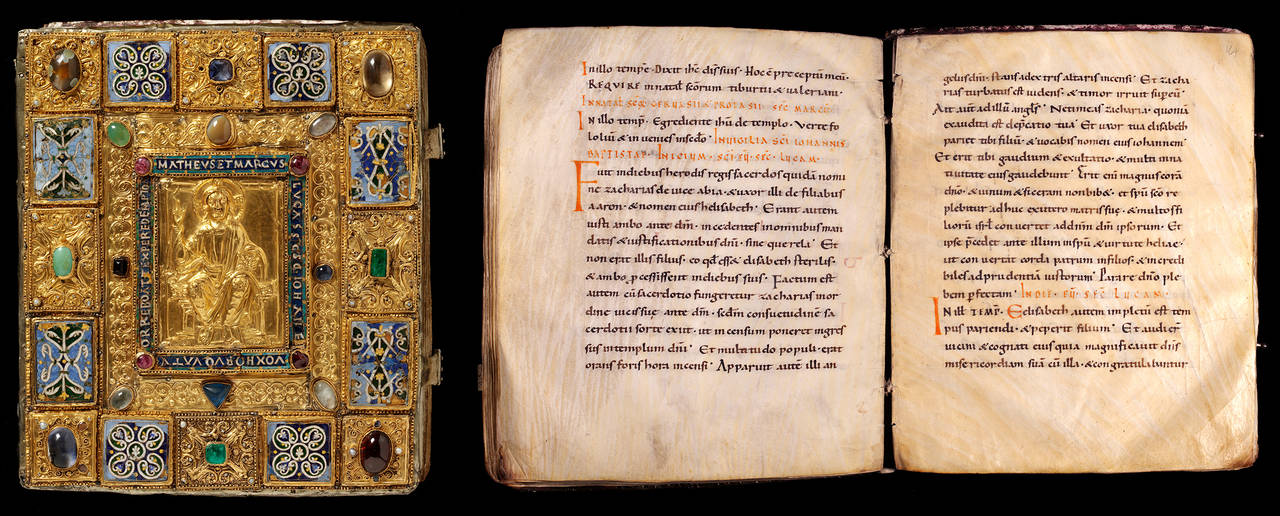 MATHEVSETMARCVS
VOXHORVQVATV
In illo tempr̄e Dixit ihc̄ disc̄ suis. Hoc ē preceptū meū.
REQUIRE in natal̄ sc̄orum tiburtii & valeriani.
IN NATAL̄ SC̄Œ GERVASII & PROTASII SEC̄ MARCŪ
IN illo temp̄r. Egrediente ihū de templo. Verte fo
lolium & invenies infedo. IN VIGILIA SC̄I IOHANNIS
BAPTISTAE. INITIUM SC̄I EV̄ SEC̄ LUCAM.
Fuit indiebus herodis regis sacerdos quidā nomi
ne zacharias de vice abia. & uxor illi de filiabus
aaron. & nomen eius helisabeth. Erant autem
iusti ambo ante dm̄. incedentes inomnibus man
datis & iustificationibus dnī sine querela. Et
non erat illis filius. eo qd̄ ess& elisabeth sterilis.
& ambo pcessissent indiebus suis. Factum est
autem cū sacerdotio fungeretur zacharias inor
dine vicis suę ante dm̄. secdm̄ consuetudinē sa
cerdotii sorte exiit. ut incensum poneret ingres
sus intemplum dnī. Et multitudo populi erat
orans foris hora incensi. Apparuit autē illi an
gelus dnī. stans adextris altaris incensi. Et zacha
rias turbatus est videns. & timor irruit sup eū.
Ait autē ad illū angl̄s. Ne timeas zacharia. quoniā
exaudita est dep̄catio tua. Et uxor tua elisabeth
pariet tibi filiū. & vocabis nomen eius iohannem.
Et erit tibi gaudium & exultatio. & multi inna
tiuitate eius gaudebunt. Erit enī magnus corā
dno. & vinum & siceram non bib&. & spū sc̄o re
plebitur adhuc exutero matris suę. & multos fi
liorū isrl̄ convert& addnm̄ dm̄ ipsorum. Et
ipse p̄ced& ante illum inspū & virtute heliae.
ut convertat corda patrum infilios. & incredi
biles adprudentiā iustorum. Parare dno ple
bem pfectam. IN DIE EV̄ SEC̄ LUCAN
IN ILL̄ TEMP̄R. Elisabeth autem impletū est tem
pus pariendi. & peperit filium. Et audier̄
vicini & cognati eius quia magnificavit dn̄s
misericordiam suā cū illa. & congratulabuntur